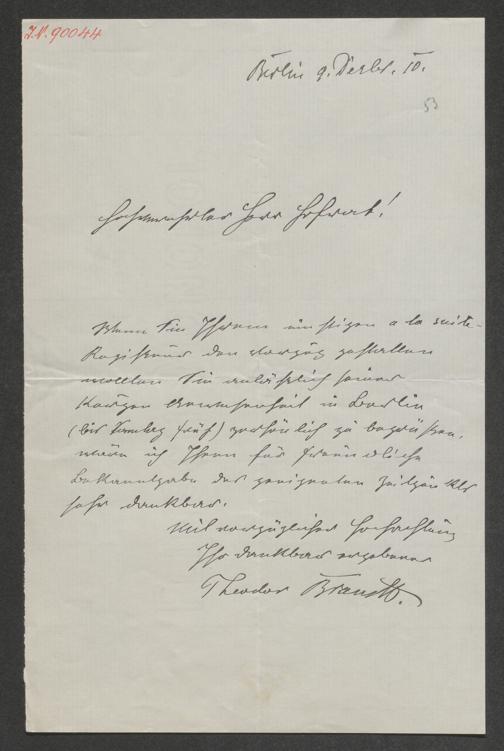 I.N. 90044
Berlin 9. Dezbr. 10.
53
Hochverehrter Herr Hofrat!
Wenn Sie Ihrem einstigen a la suite-
Regisseur den Vorzug gestatten
wollten Sie anläßlich seiner
kurzen Anwesenheit in Berlin
(bis Sonntag früh) persönlich zu begrüßen,
wäre ich Ihnen für freundliche
Bekanntgabe des geeigneten Zeitpunktes
sehr dankbar.
Mit vorzüglicher Hochachtung
Ihr dankbar ergebener
Theodor Brandt.